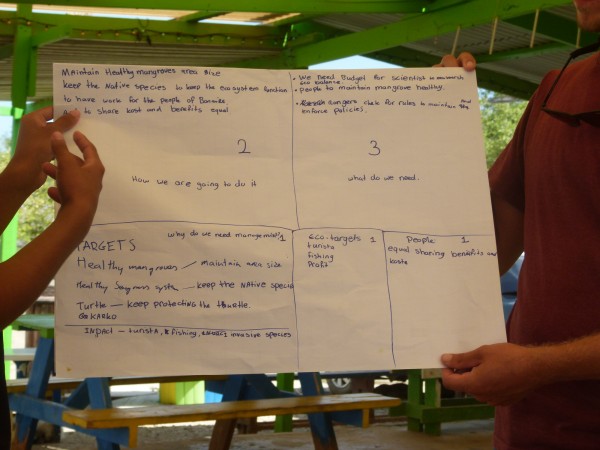 Maintain Healthy mangroves area size
keep the Native species to keep the ecosystem function
to have work for the people of Bonaire
to share kost and benefits equal
2
How we are going to do it
• We need Budget for scientist to
• people to maintain mangrove healthy.
• Rangers for rules to maintain and
enforce policies.
3
what do we need.
why do we need management 1
TARGETS
Healthy mangroves — maintain area size
Healthy Seagrass syste — keep the NAtive specie
Turtle — keep protecting the turtle.
KARKO
IMPAct — turista, fishing, invasive species
Eco-targets 1
turista
fishing
Profit
People 1
equal sharing benefits
koste